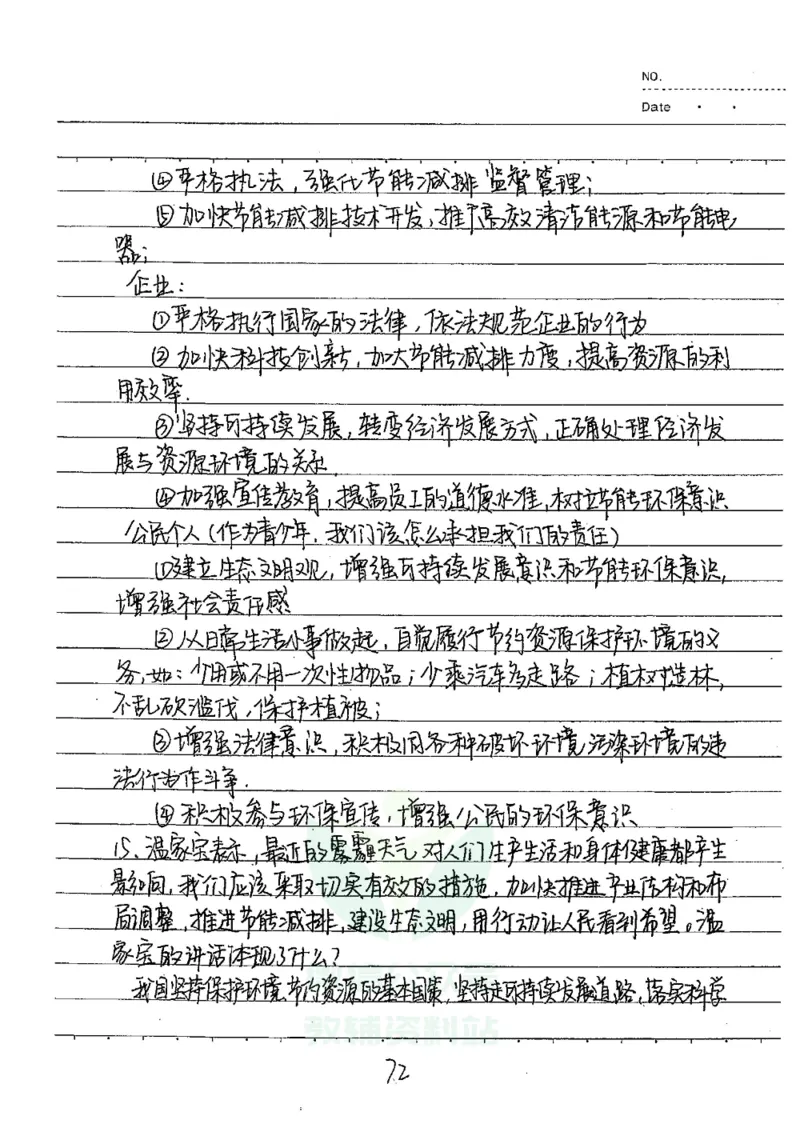 NO.
Date
④严格执法，强化节能减排监督管理；
⑤加快节能减排技术开发，推广高效清洁能源和节能电
器；
企业：
①严格执行国家的法律，依法规范企业的行为
②加快科技创新，加大节能减排力度，提高资源的利
用效率.
③坚持可持续发展，转变经济发展方式，正确处理经济发
展与资源环境的关系.
④加强宣传教育，提高员工的道德水准，树立节能环保意识
公民个人（作为青少年，我们该怎么承担我们的责任）
①建立生态文明观，增强可持续发展意识和节能环保意识，
增强社会责任感
②从日常生活小事做起，自觉履行节约资源保护环境的义
务，如：少用或不用一次性物品；少乘汽车多走路；植树造林，
不乱砍滥伐，保护植被；
③增强法律意识，积极同各种破坏环境污染环境的违
法行为作斗争.
④积极参与环保宣传，增强公民的环保意识
15、温家宝表示，最近的雾霾天气对人们生产生活和身体健康都产生
影响，我们应该采取切实有效的措施，加快推进产业结构和布
局调整，推进节能减排，建设生态文明，用行动让人民看到希望。温
家宝的讲话体现了什么？
我国坚持保护环境节约资源的基本国策，坚持走可持续发展道路，落实科学
教辅资料站
72